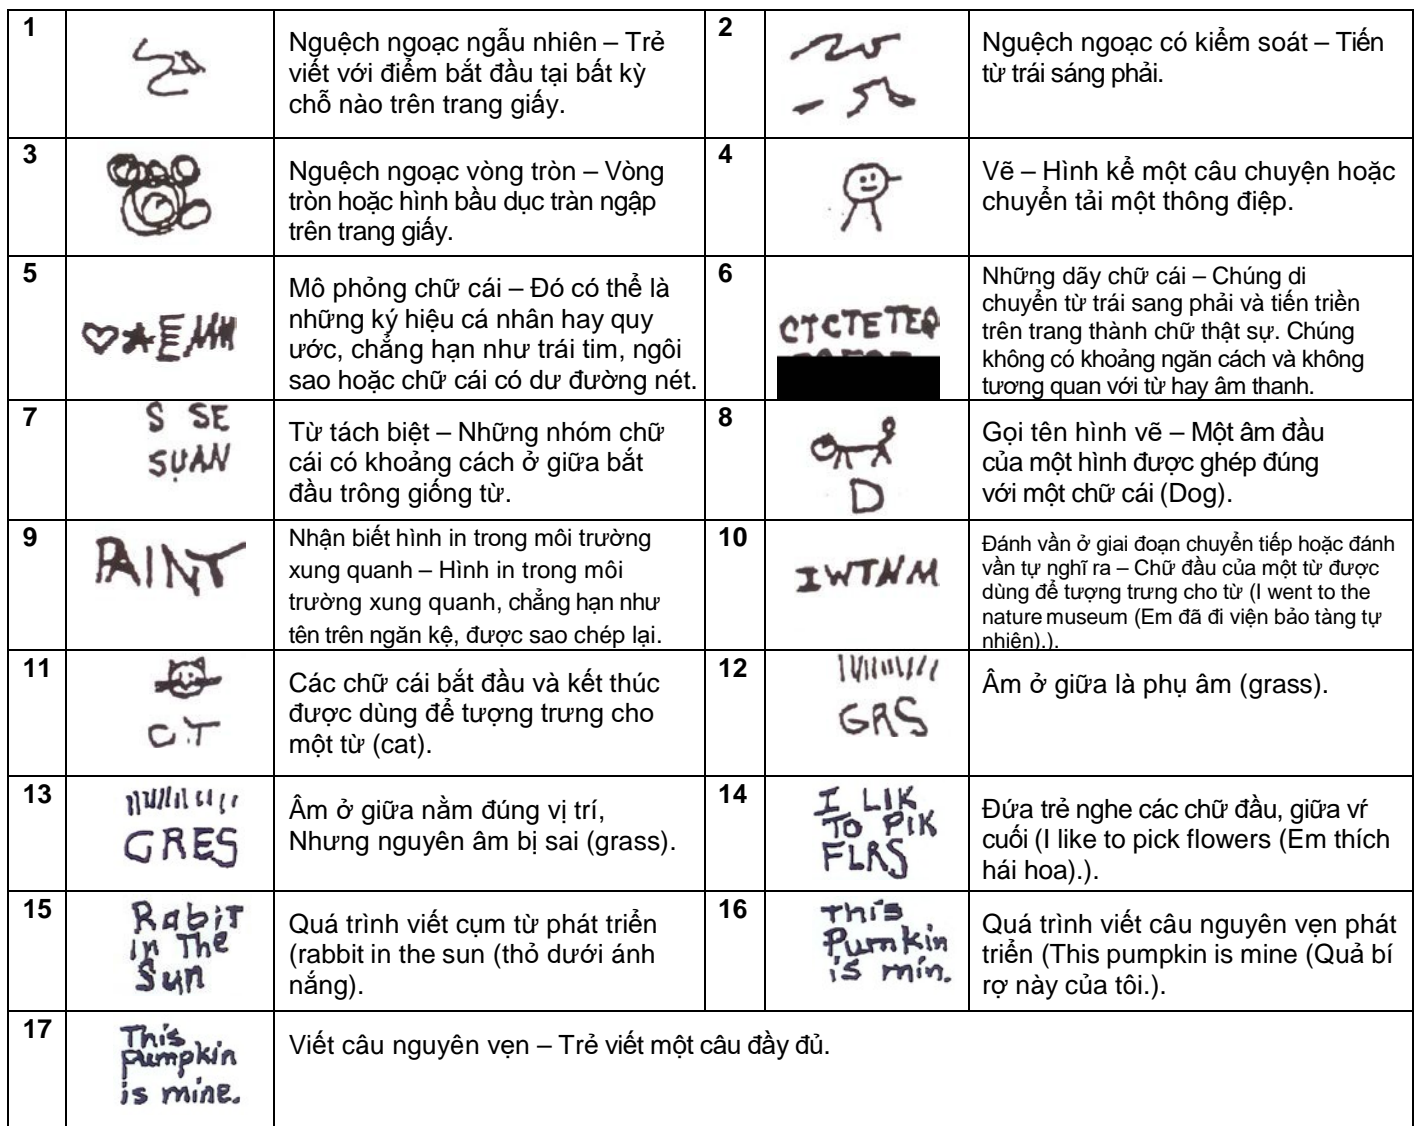 1
Nguệch ngoạc ngẫu nhiên – Trẻ
viết với điểm bắt đầu tại bất kỳ
chỗ nào trên trang giấy.
2
Nguệch ngoạc có kiểm soát – Tiến
từ trái sáng phải.
3
Nguệch ngoạc vòng tròn – Vòng
tròn hoặc hình bầu dục tràn ngập
trên trang giấy.
4
Vẽ – Hình kể một câu chuyện hoặc
chuyển tải một thông điệp.
5
Mô phỏng chữ cái – Đó có thể là
những ký hiệu cá nhân hay quy
ước, chẳng hạn như trái tim, ngôi
sao hoặc chữ cái có dư đường nét.
6
CTCTETEQ
Những dãy chữ cái – Chúng di
chuyển từ trái sang phải và tiến triền
trên trang thành chữ thật sự. Chúng
không có khoảng ngăn cách và không
tương quan với từ hay âm thanh.
7
S SE
SUAN
Từ tách biệt – Những nhóm chữ
cái có khoảng cách ở giữa bắt
đầu trông giống từ.
8
D
Gọi tên hình vẽ – Một âm đầu
của một hình được ghép đúng
với một chữ cái (Dog).
9
PAINT
Nhận biết hình in trong môi trường
xung quanh – Hình in trong môi
trường xung quanh, chẳng hạn như
tên trên ngăn kệ, được sao chép lại.
10
IWTNM
Đánh vần ở giai đoạn chuyển tiếp hoặc đánh
vần tự nghĩ ra – Chữ đầu của một từ được
dùng để tượng trưng cho từ (I went to the
nature museum (Em đã đi viện bảo tàng tự
nhiên).).
11
CT
Các chữ cái bắt đầu và kết thúc
được dùng để tượng trưng cho
một từ (cat).
12
GRS
Âm ở giữa là phụ âm (grass).
13
GRES
Âm ở giữa nằm đúng vị trí,
Nhưng nguyên âm bị sai (grass).
14
I LIK
TO PIK
FLRS
Đứa trẻ nghe các chữ đầu, giữa vŕ
cuối (I like to pick flowers (Em thích
hái hoa).).
15
RabiT
in The
Sun
Quá trình viết cụm từ phát triển
(rabbit in the sun (thỏ dưới ánh
nắng).
16
This
Pumkin
is min.
Quá trình viết câu nguyên vẹn phát
triển (This pumpkin is mine (Quả bí
rợ này của tôi.).
17
This
pumpkin
is mine.
Viết câu nguyên vẹn – Trẻ viết một câu đầy đủ.